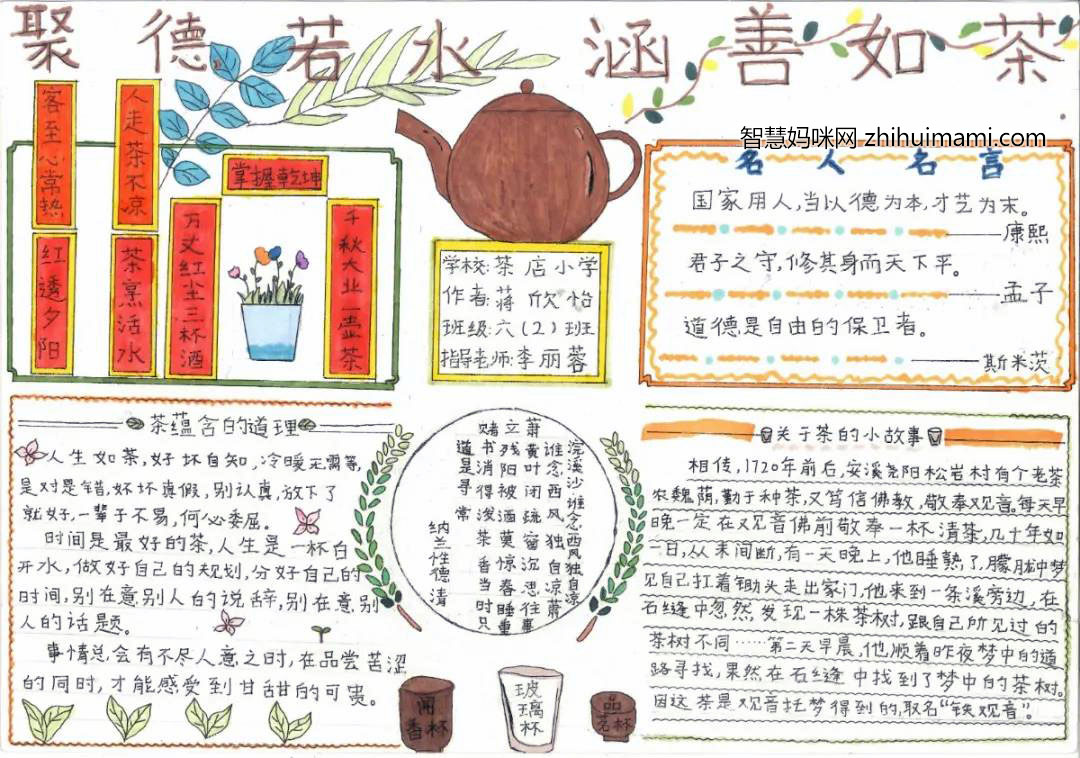 聚德若水 涵善如茶
智慧妈咪网 zhihuimami.com
客至心常热
人走茶不凉
红透夕阳
茶烹活水
掌握乾坤
万丈红尘三杯酒
千秋大业一壶茶
学校:茶店小学
作者:蒋欣怡
班级:六(2)班
指导老师:李丽蓉
名人名言
国家用人,当以德为本,才艺为末。
——康熙
君子之守,修其身而天下平。
——孟子
道德是自由的保卫者。
——斯米茨
茶蕴含的道理
人生如茶,好坏自知,冷暖无需等,
是对是错,好坏真假,别认真,放下了
就好,一辈子不易,何必委屈。
时间是最好的茶,人生是一杯白
开水,做好自己的规划,分好自己的
时间,别在意别人的说辞,别在意别
人的话题。
事情总会有不尽人意之时,在品尝苦涩
的同时,才能感受到甘甜的可贵。
浣溪沙谁念西风独自凉
谁念西风独自凉萧
萧黄叶闭疏窗沉思往事
立残阳被酒莫惊春睡重
赌书消得泼茶香当时只
道是寻常
纳兰性德 清
闻香杯
玻璃杯
品茗杯
关于茶的小故事
相传,1720年前后,安溪尧阳松岩村有个老茶
农魏荫,勤于种茶,又笃信佛教,敬奉观音。每天早
晚一定在观音佛前敬奉一杯清茶,几十年如
一日,从未间断,有一天晚上,他睡熟了,朦胧中梦
见自己扛着锄头走出家门,他来到一条溪旁边,在
石缝中忽然发现一株茶树,跟自己所见过的
茶树不同……第二天早晨,他顺着昨夜梦中的道
路寻找,果然在石缝中找到了梦中的茶树。
因这茶是观音托梦得到的,取名“铁观音”。